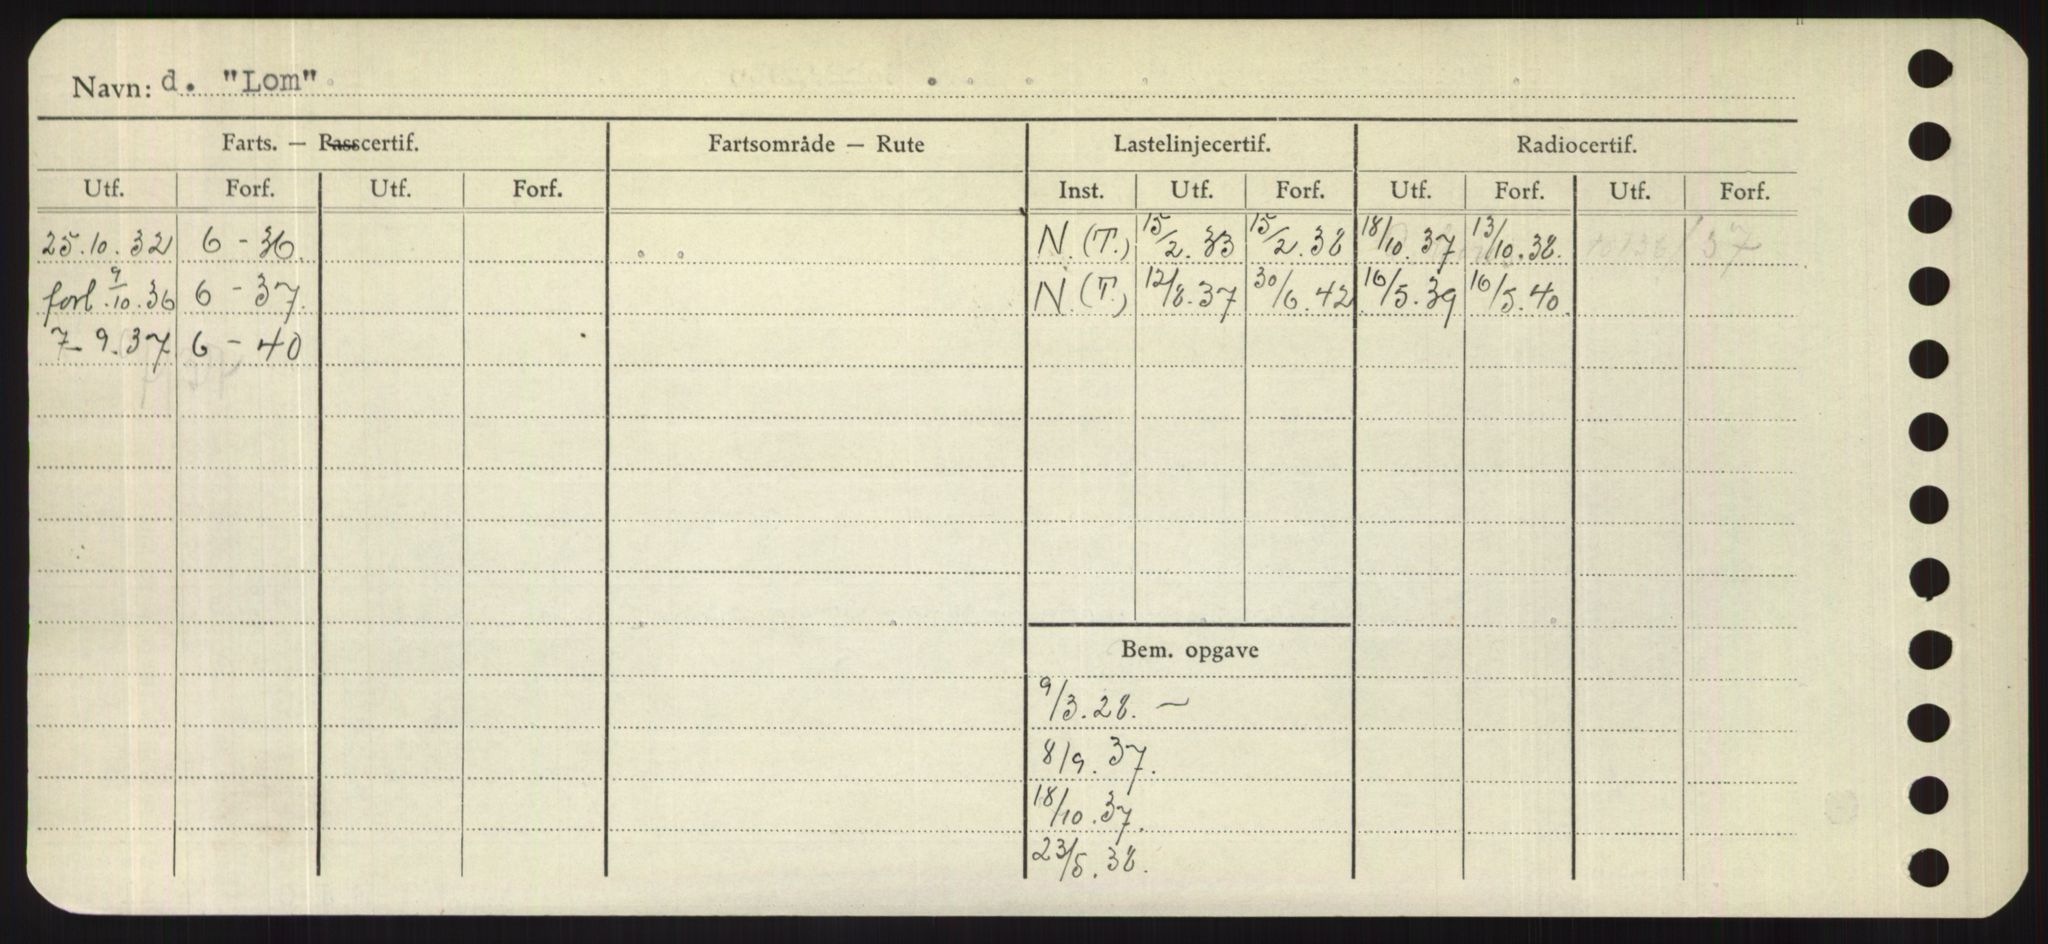 Navn: d. "Lom"
Farts. — Passcertif. Fartsområde — Rute Lastelinjecertif. Radiocertif.
Utf. Forf. Utf. Forf. Inst. Utf. Forf. Utf. Forf. Utf. Forf.
25.10.32 6 - 36. N. (T.) 15/2.33 15/2.38 18/10.37 13/10.38. 37
forl. 9/10.36 6 - 37. N. (T.) 12/8.37 30/6.42 16/5.39 16/5.40.
7-9.37 6 - 40
Bem. opgave
9/3.28. —
8/9.37.
18/10.37.
23/5.38.